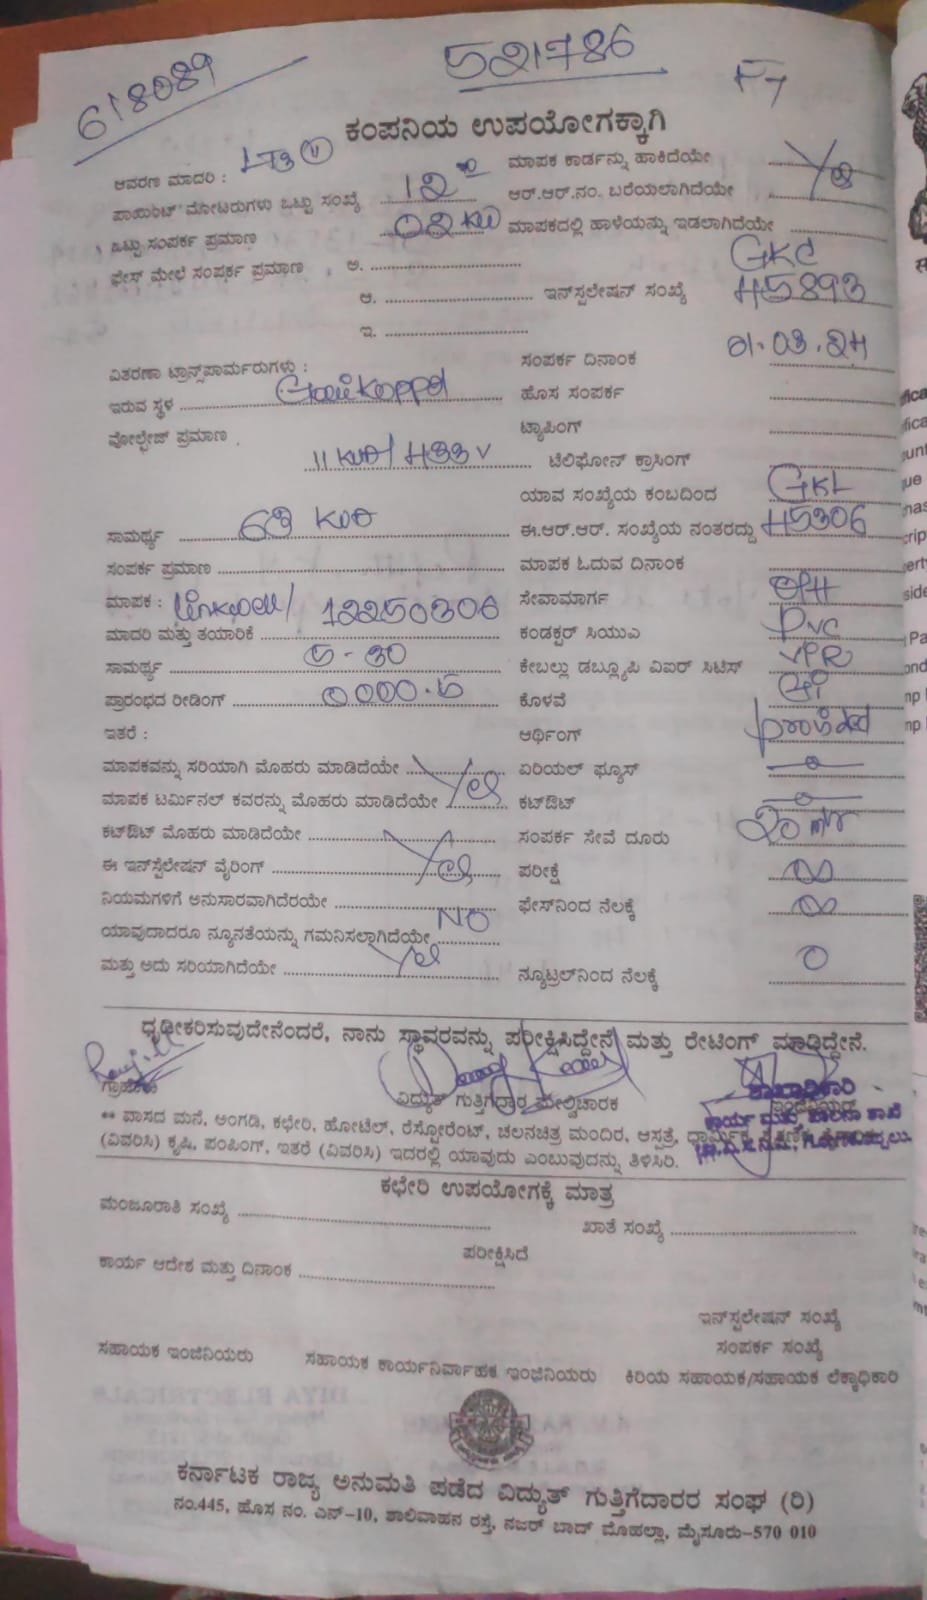 618089
521786
F7
ಕಂಪನಿಯ ಉಪಯೋಗಕ್ಕಾಗಿ
ಆವರಣ ಮಾದರಿ : LT3 ಮಾಪಕ ಕಾರ್ಡನ್ನು ಹಾಕಿದೆಯೇ Yes
ಪಾಯಿಂಟ್ ಮೋಟರುಗಳು ಒಟ್ಟು ಸಂಖ್ಯೆ 12 ಆರ್.ಆರ್.ನಂ. ಬರೆಯಲಾಗಿದೆಯೇ
ಒಟ್ಟು ಸಂಪರ್ಕ ಪ್ರಮಾಣ 02 KW ಮಾಪಕದಲ್ಲಿ ಹಾಳೆಯನ್ನು ಇಡಲಾಗಿದೆಯೇ
ಫೇಸ್ ಮೇಲೆ ಸಂಪರ್ಕ ಪ್ರಮಾಣ ಅ.
ಆ. ಇನ್‌ಸ್ಟಲೇಷನ್ ಸಂಖ್ಯೆ GKL 45893
ಇ.
ವಿತರಣಾ ಟ್ರಾನ್ಸ್‌ಪಾರ್ಮರುಗಳು : ಸಂಪರ್ಕ ದಿನಾಂಕ 01.03.24
ಇರುವ ಸ್ಥಳ ಹೊಸ ಸಂಪರ್ಕ
ವೋಲ್ಟೇಜ್ ಪ್ರಮಾಣ ಟ್ಯಾಪಿಂಗ್
11 KVA/433 V ಟೆಲಿಫೋನ್ ಕ್ರಾಸಿಂಗ್
ಯಾವ ಸಂಖ್ಯೆಯ ಕಂಬದಿಂದ GKL
ಸಾಮರ್ಥ್ಯ 63 KVA ಈ.ಆರ್.ಆರ್. ಸಂಖ್ಯೆಯ ನಂತರದ್ದು 45306
ಸಂಪರ್ಕ ಪ್ರಮಾಣ ಮಾಪಕ ಓದುವ ದಿನಾಂಕ
ಮಾಪಕ : Linkwell/ 12250306 ಸೇವಾಮಾರ್ಗ OPH
ಮಾದರಿ ಮತ್ತು ತಯಾರಿಕೆ ಕಂಡಕ್ಟರ್ ಸಿಯುಎ PVC
ಸಾಮರ್ಥ್ಯ 5-30 ಕೇಬಲ್ಲು ಡಬ್ಲ್ಯೂಪಿ ವಿಐಆರ್ ಸಿಟಿಸ್ VPR
ಪ್ರಾರಂಭದ ರೀಡಿಂಗ್ 0000.5 ಕೊಳವೆ GI
ಇತರೆ : ಆರ್ಥಿಂಗ್ provided
ಮಾಪಕವನ್ನು ಸರಿಯಾಗಿ ಮೊಹರು ಮಾಡಿದೆಯೇ ಏರಿಯಲ್ ಫ್ಯೂಸ್
ಮಾಪಕ ಟರ್ಮಿನಲ್ ಕವರನ್ನು ಮೊಹರು ಮಾಡಿದೆಯೇ Yes ಕಟ್‌ಔಟ್
ಕಟ್‌ಔಟ್ ಮೊಹರು ಮಾಡಿದೆಯೇ ಸಂಪರ್ಕ ಸೇವೆ ದೂರು 20 mtr
ಈ ಇನ್‌ಸ್ಟೆಲೇಷನ್ ವೈರಿಂಗ್ Yes ಪರೀಕ್ಷೆ ∞
ನಿಯಮಗಳಿಗೆ ಅನುಸಾರವಾಗಿದೆರಯೇ ಫೇಸ್‌ನಿಂದ ನೆಲಕ್ಕೆ ∞
ಯಾವುದಾದರೂ ನ್ಯೂನತೆಯನ್ನು ಗಮನಿಸಲ್ಪಾಗಿದೆಯೇ NO
ಮತ್ತು ಅದು ಸರಿಯಾಗಿದೆಯೇ Yes ನ್ಯೂಟ್ರಲ್‌ನಿಂದ ನೆಲಕ್ಕೆ 0
ಧೃಢೀಕರಿಸುವುದೇನೆಂದರೆ, ನಾನು ಸ್ಥಾವರವನ್ನು ಪರೀಕ್ಷಿಸಿದ್ದೇನೆ ಮತ್ತು ರೇಟಿಂಗ್ ಮಾಡಿದ್ದೇನೆ.
ಗ್ರಾಹಕರು ವಿದ್ಯುತ್ ಗುತ್ತಿಗೆದಾರ ಮೇಲ್ವಿಚಾರಕ ಶಾಖಾಧಿಕಾರಿ
** ವಾಸದ ಮನೆ, ಅಂಗಡಿ, ಕಛೇರಿ, ಹೋಟೆಲ್, ರೆಸ್ಟೋರೆಂಟ್, ಚಲನಚಿತ್ರ ಮಂದಿರ, ಆಸ್ಪತ್ರೆ, ಧಾರ್ಮಿಕ
(ವಿವರಿಸಿ) ಕೃಷಿ, ಪಂಪಿಂಗ್, ಇತರೆ (ವಿವರಿಸಿ) ಇದರಲ್ಲಿ ಯಾವುದು ಎಂಬುವುದನ್ನು ತಿಳಿಸಿರಿ.
ಕಛೇರಿ ಉಪಯೋಗಕ್ಕೆ ಮಾತ್ರ
ಮಂಜೂರಾತಿ ಸಂಖ್ಯೆ ಖಾತೆ ಸಂಖ್ಯೆ
ಪರೀಕ್ಷಿಸಿದೆ
ಕಾರ್ಯ ಆದೇಶ ಮತ್ತು ದಿನಾಂಕ
ಇನ್‌ಸ್ಟಲೇಷನ್ ಸಂಖ್ಯೆ
ಸಂಪರ್ಕ ಸಂಖ್ಯೆ
ಸಹಾಯಕ ಇಂಜಿನಿಯರು ಸಹಾಯಕ ಕಾರ್ಯನಿರ್ವಾಹಕ ಇಂಜಿನಿಯರು ಕಿರಿಯ ಸಹಾಯಕ/ಸಹಾಯಕ ಲೆಕ್ಕಾಧಿಕಾರಿ
ಕರ್ನಾಟಕ ರಾಜ್ಯ ಅನುಮತಿ ಪಡೆದ ವಿದ್ಯುತ್ ಗುತ್ತಿಗೆದಾರರ ಸಂಘ (ರಿ)
ನಂ.445, ಹೊಸ ನಂ. ಎನ್-10, ಶಾಲಿವಾಹನ ರಸ್ತೆ, ನಜರ್ ಬಾದ್ ಮೊಹಲ್ಲಾ, ಮೈಸೂರು-570 010